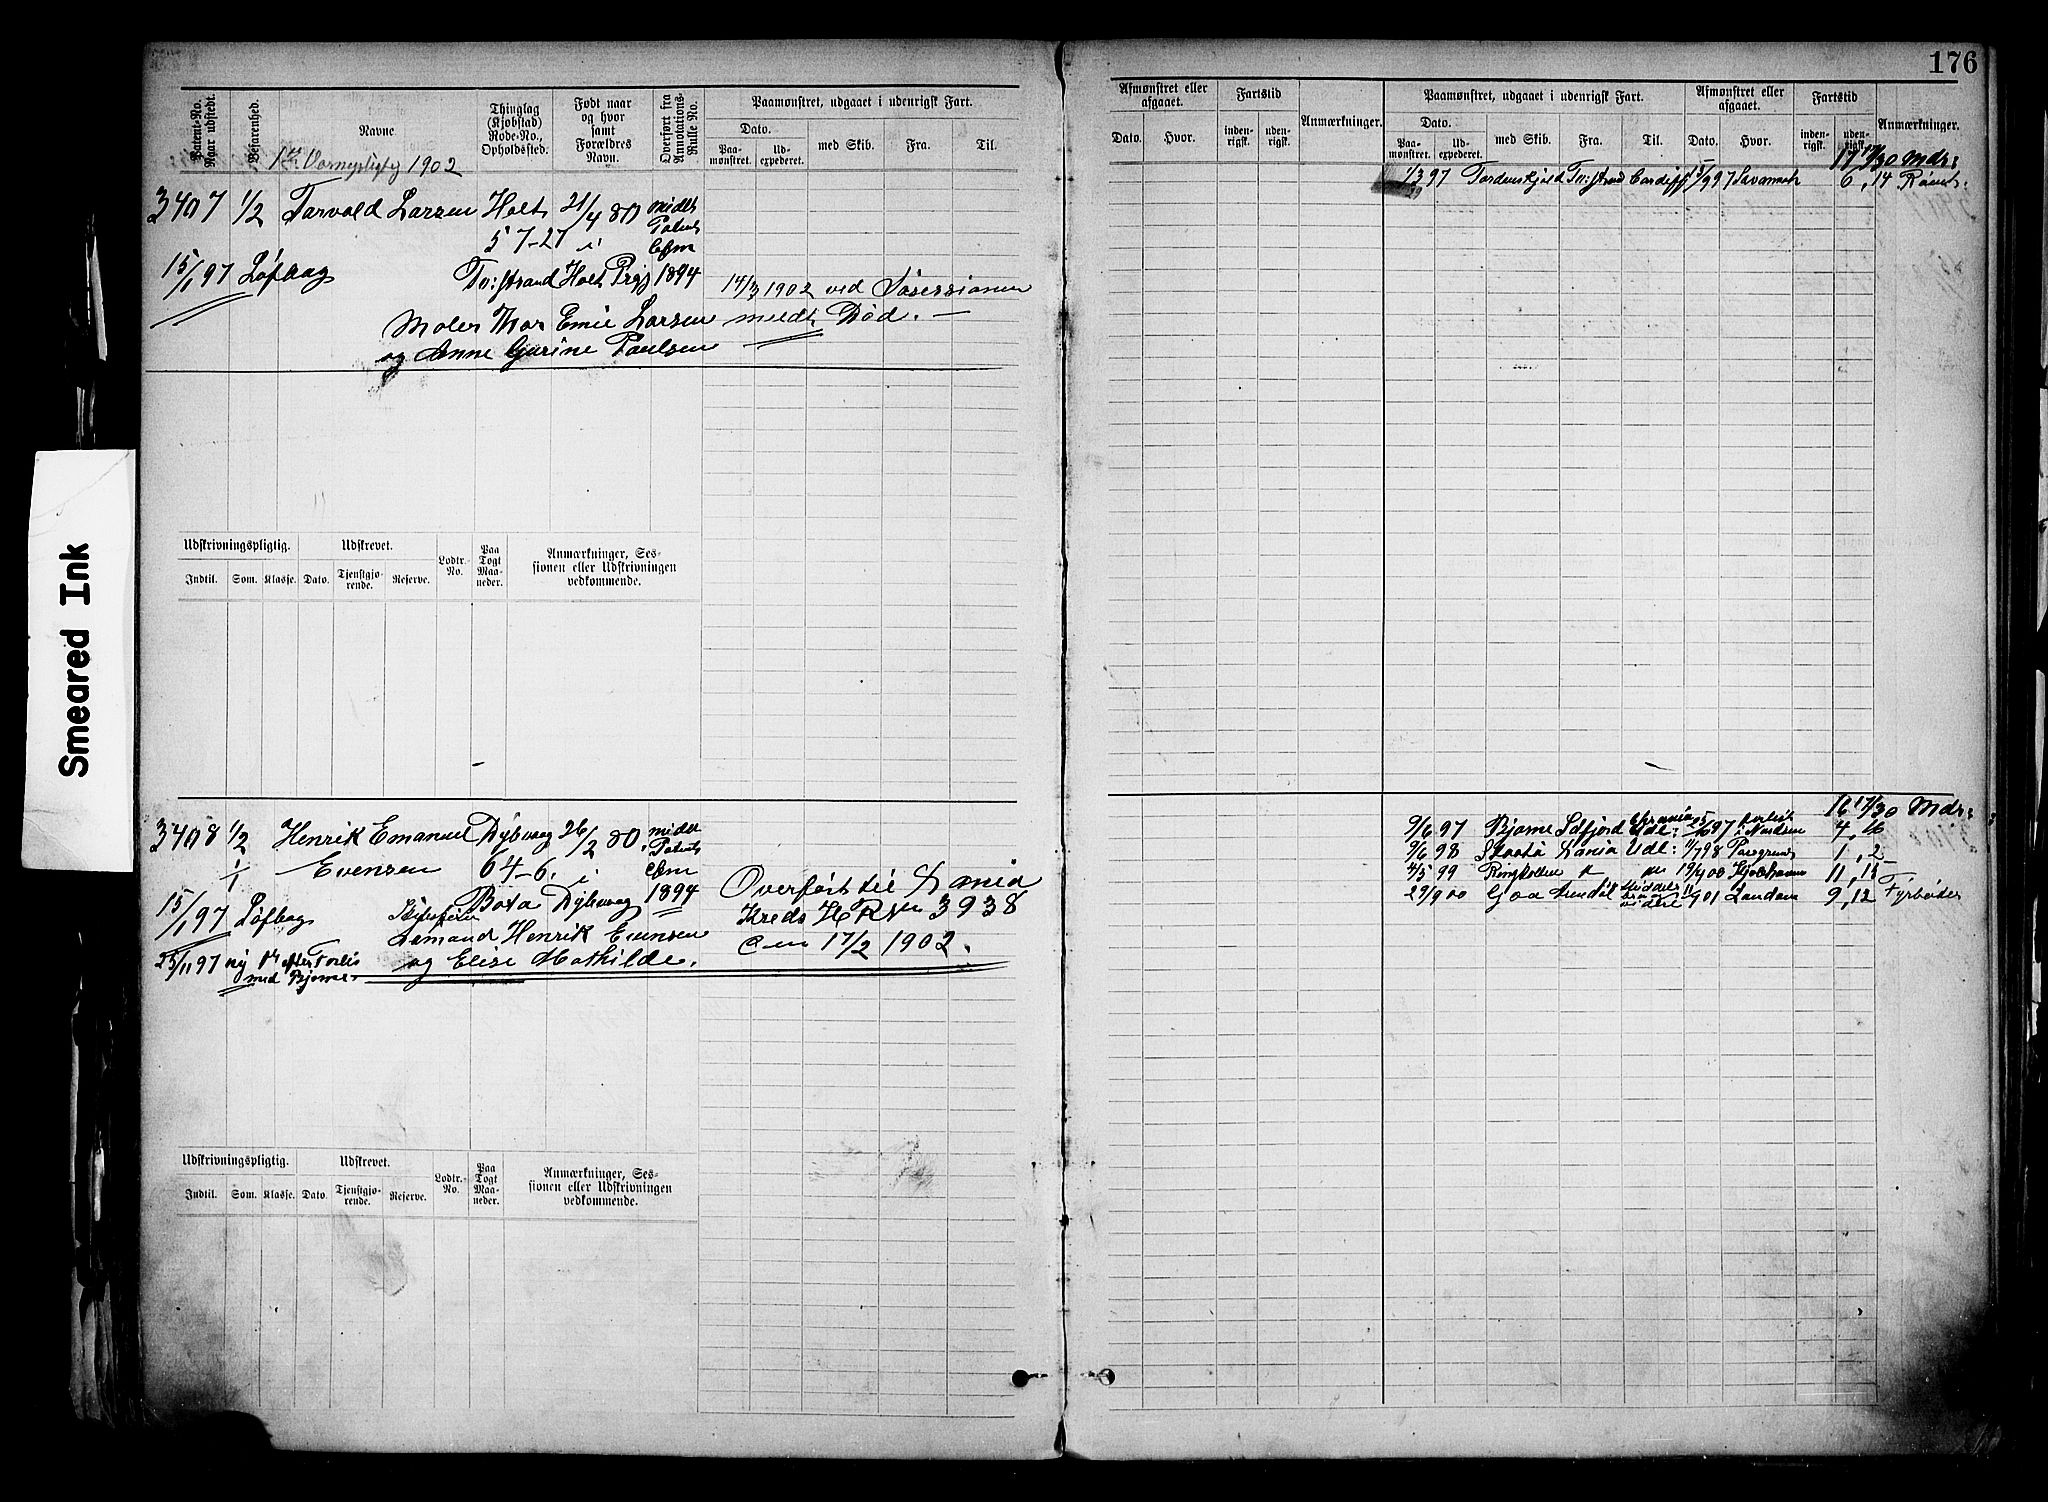 176
Patent-No. Naar udstedt.
Befarenhed.
Navne
Thinglag (Kjøbstad) Rode-No., Opholdssted.
Født naar og hvor samt Forældres Navn.
Overført fra Annotations-Rulle No.
Paamønstret, udgaaet i udenrigsk Fart.
Dato.
Paamønstret.
Udexpederet.
med Skib.
Fra.
Til.
Afmønstret eller afgaaet.
Dato.
Hvor.
Fartstid
indenrigsk.
udenrigsk.
Anmærkninger.
Paamønstret, udgaaet i udenrigsk Fart.
Dato.
Paamønstret.
Udexpederet.
med Skib.
Fra.
Til.
Afmønstret eller afgaaet.
Dato.
Hvor.
Fartstid
indenrigsk.
udenrigsk.
Anmærkninger.
Værnepligtig 1902
3407 1/2 Tarvald Larsen Holt 21/4 80 midlt
57-27 i Patent
15/1 97 Løfbag Tv:strand Holt Prgj 1894
14/3 1902 ved Sesessionen
Maler Thor Emil Larsen meldt Død.
og Anne Gurine Paulsen
1/3 97 Tordenskjold Tv:strand Cardiff 15/9 97 Savannah 6, 14
17 17/30 Mdr:
Udskrivningspligtig.
Udskrevet.
Lodtr.-No.
Paa Togt Maaneder.
Anmærkninger, Sessionen eller Udskrivningen vedkommende.
Indtil.
Som.
Klasse.
Dato.
Tjenstgjørende.
Reserve.
3408 1/2 Henrik Emanuel Dybvaag 26/2 80 midlt
1/1 Evensen 64-6. i Patent
15/1 97 Løfbag Bota Dybvaag 1894 Overført til Lania
Kreds H R No 3938
Henrik Evensen den 17/2 1902.
25/11 97 ny Pt efter Forlis og Elise Mathilde.
med Bjarne
16 17/30 Mdr:
9/6 97 Bjarne Idfjord Udl: 25/10 97 forlist i Nordsøen 4, 16
9/6 98 Lania Udl: 11/7 98 Porsgrund 1, 2
4/5 99 Ringkollen 19/4 00 Kjøbhavn 11, 15
29/9 00 Goa Arendal 11/7 01 London 9, 12 Fyrbøder
Udskrivningspligtig.
Udskrevet.
Lodtr.-No.
Paa Togt Maaneder.
Anmærkninger, Sessionen eller Udskrivningen vedkommende.
Indtil.
Som.
Klasse.
Dato.
Tjenstgjørende.
Reserve.
Smeared Ink